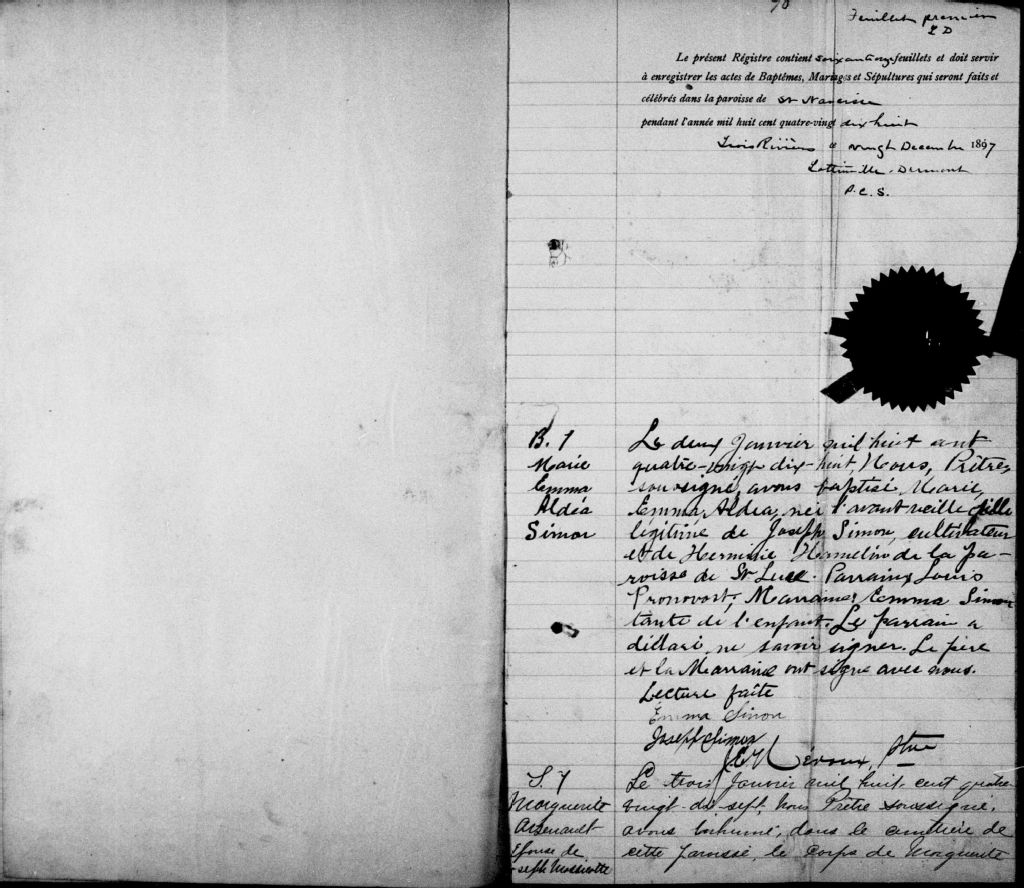 70
Feuillet premier
L D
Le présent Régistre contient soixante onze feuillets et doit servir
à enregistrer les actes de Baptêmes, Mariages et Sépultures qui seront faits et
célébrés dans la paroisse de St Narcisse
pendant l'année mil huit cent quatre-vingt dix huit
Trois Rivières ce vingt Decembre 1897
P. C. S.
B. 1
Marie
Emma
Aldéa
Simon
Le deux Janvier mil huit cent
quatre-vingt dix-huit, Nous, Prêtre,
soussigné, avons baptisé Marie,
Emma, Aldéa, née l'avant veille fille
légitime de Joseph Simon, cultivateur
et de Herminie Hamelin de la pa-
roisse de St Luc. Parrain Louis
Pronovost, Marraine Emma Simon
tante de l'enfant. Le parrain a
déclaré ne savoir signer. Le père
et la Marraine ont signé avec nous.
Lecture faite
Emma Simon
Joseph Simon
Ptre
S. 1
Marguerite
Arsenault
Épouse de
Joseph Massicotte
Le trois Janvier mil huit cent quatre
vingt dix sept, Nous Prêtre soussigné,
avons inhumé, dans le cimetière de
cette paroisse, le corps de Marguerite